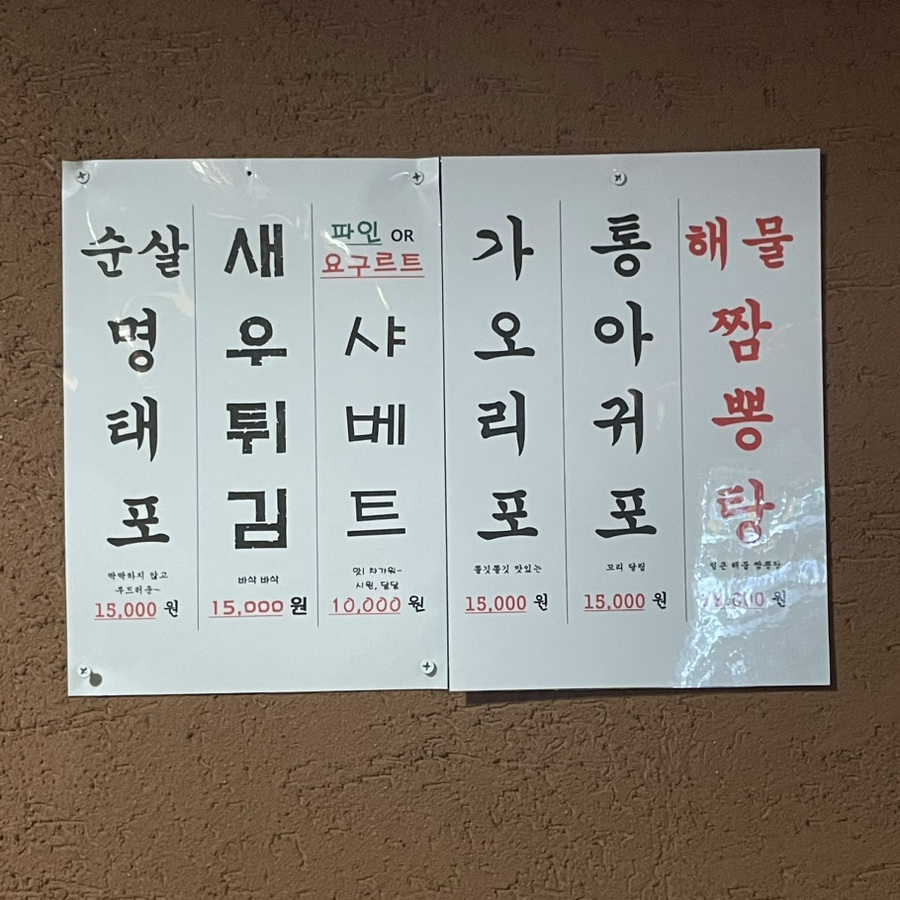 순살
명
태
포
딱딱하지 않고
부드러운~
15,000 원
새
우
튀
김
바삭 바삭
15,000 원
파인 OR
요구르트
샤
베
트
앗! 차가워~
시원, 달달
10,000 원
가
오
리
포
쫄깃쫄깃 맛있는
15,000 원
통
아
귀
포
꼬리 달림
15,000 원
해물
짬
뽕
탕
얼큰 해물 짬뽕탕
원